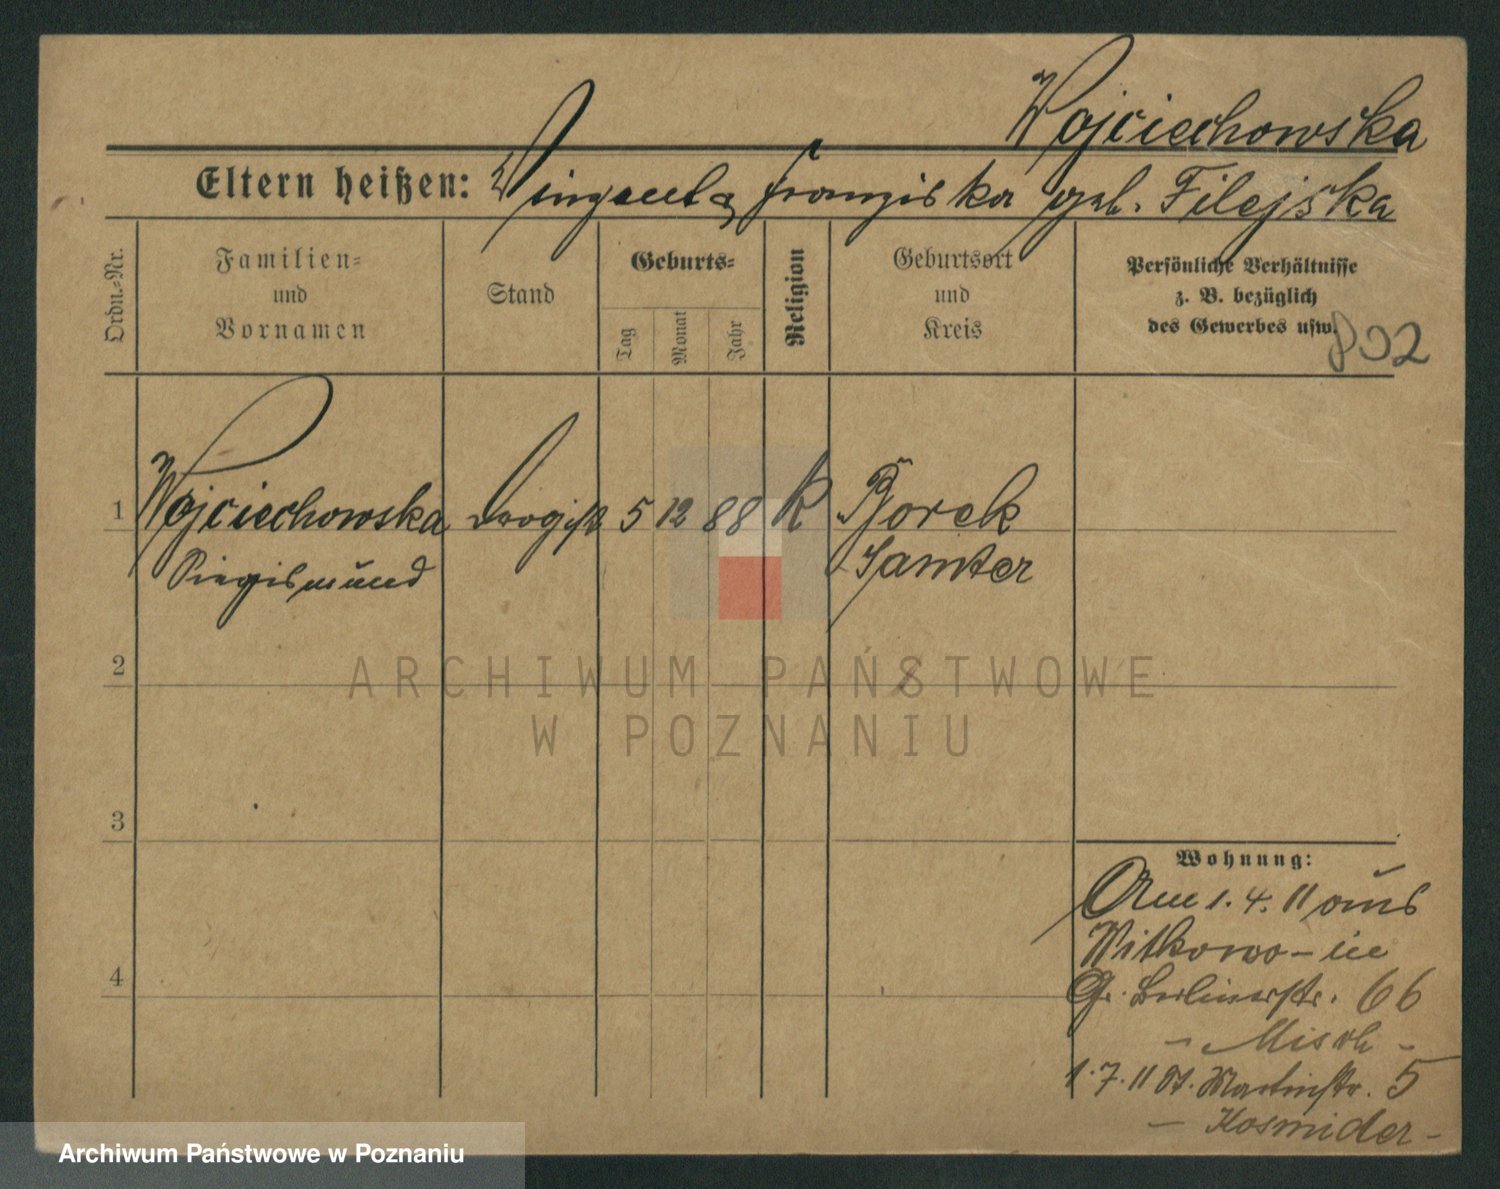 Wojciechowska
Eltern heißen: Vinzent & Franziska geb. Filejska
Ordn.-Nr.
Familien-
und
Vornamen
Stand
Geburts-
Tag
Monat
Jahr
Religion
Geburtsort
und
Kreis
Persönliche Verhältnisse
z. B. bezüglich
des Gewerbes usw.
802
1 Wojciechowska Drogist 5 12 88 K Borek
Siegismund Samter
2
3
4
Wohnung:
Am 1. 4. 11 aus
Witkowo - in
Gr. Berlinerstr. 66
- Misch -
1. 7. 11 St. Martinstr. 5
- Kosmider -
ARCHIWUM PAŃSTWOWE
W POZNANIU
Archiwum Państwowe w Poznaniu